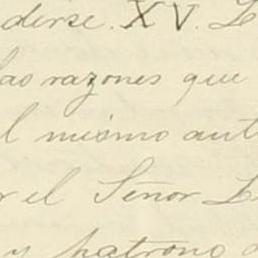 dirse. XV. L
las razones que
l mismo aut
r el Señor L
y patrono d